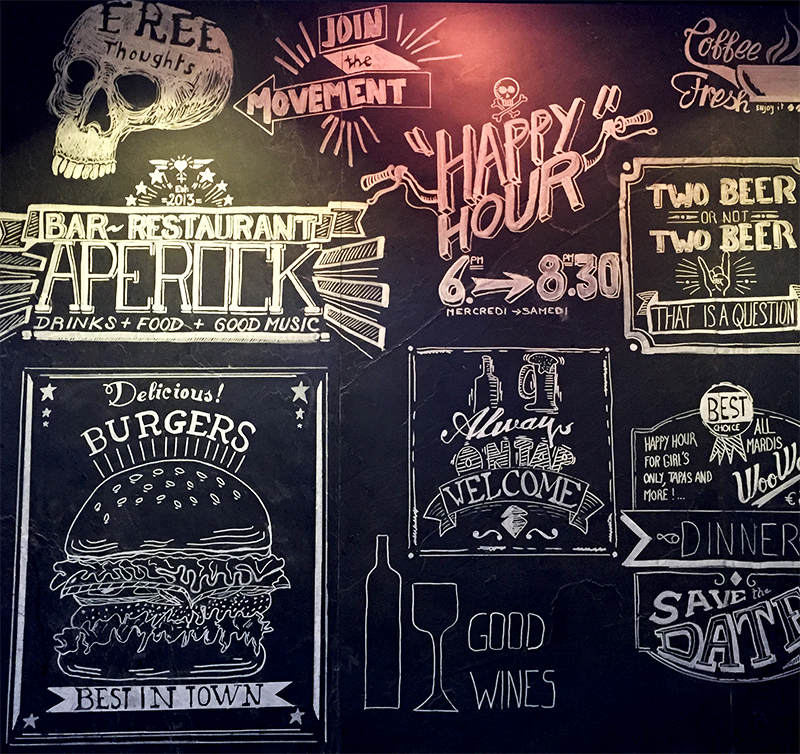 FREE
Thoughts
JOIN
the
MOVEMENT
Coffee
Fresh
ENJOY it
"HAPPY
HOUR"
6.PM → 8.PM30
MERCREDI → SAMEDI
Est.
=2013=
BAR~RESTAURANT
APEROCK
DRINKS + FOOD + GOOD MUSIC
TWO BEER
OR NOT
TWO BEER
THAT IS A QUESTION
Delicious!
BURGERS
BEST IN TOWN
Always
ON TAP
WELCOME
BEST
CHOICE
HAPPY HOUR
FOR GIRL'S
ONLY, TAPAS AND
MORE !...
ALL
MARDIS
€
DINNER
SAVE the
DATE
GOOD
WINES